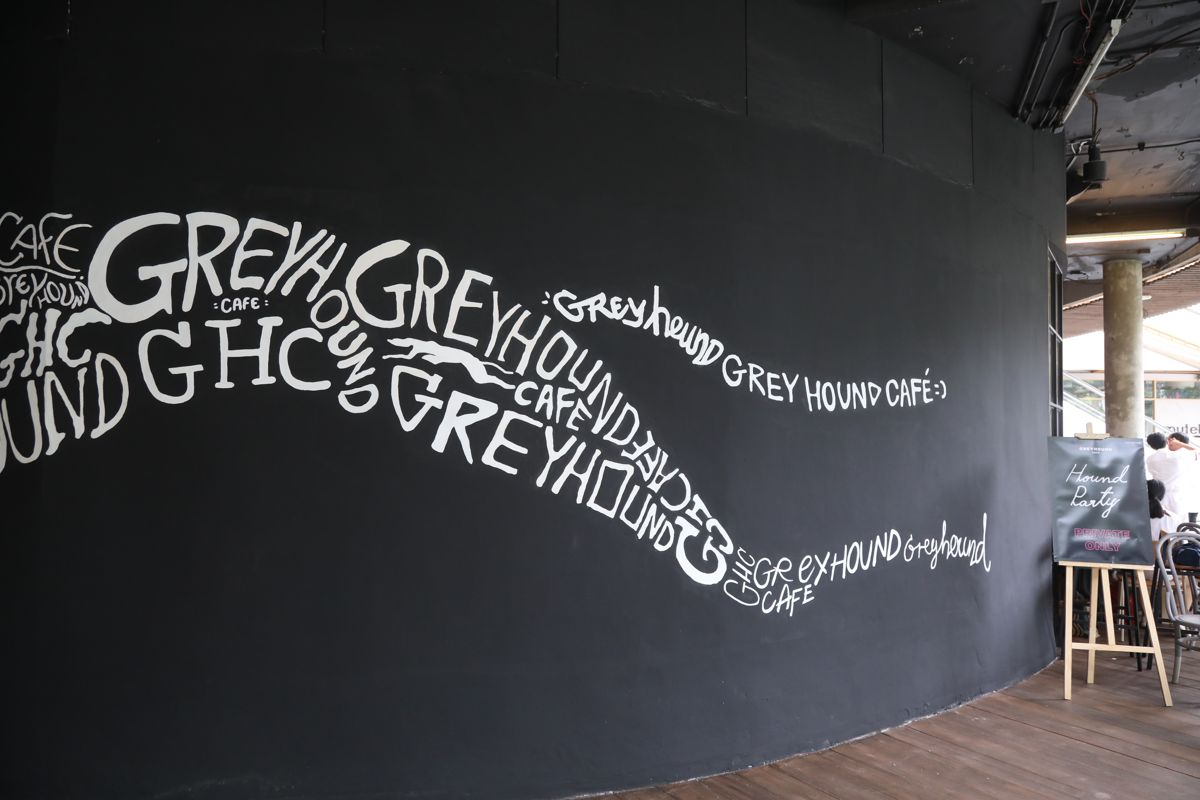 CAFE
GREYHOUND
GHC
OUND
GREYHOUND
:CAFE:
GHC
GREYHOUND
CAFE
CAFE
GREYHOUND
GHC
GREYHOUND
CAFE
Greyhound
:Greyhound GREY HOUND CAFÉ:)
GREYHOUND
Hound
Party
PRIVATE
ONLY